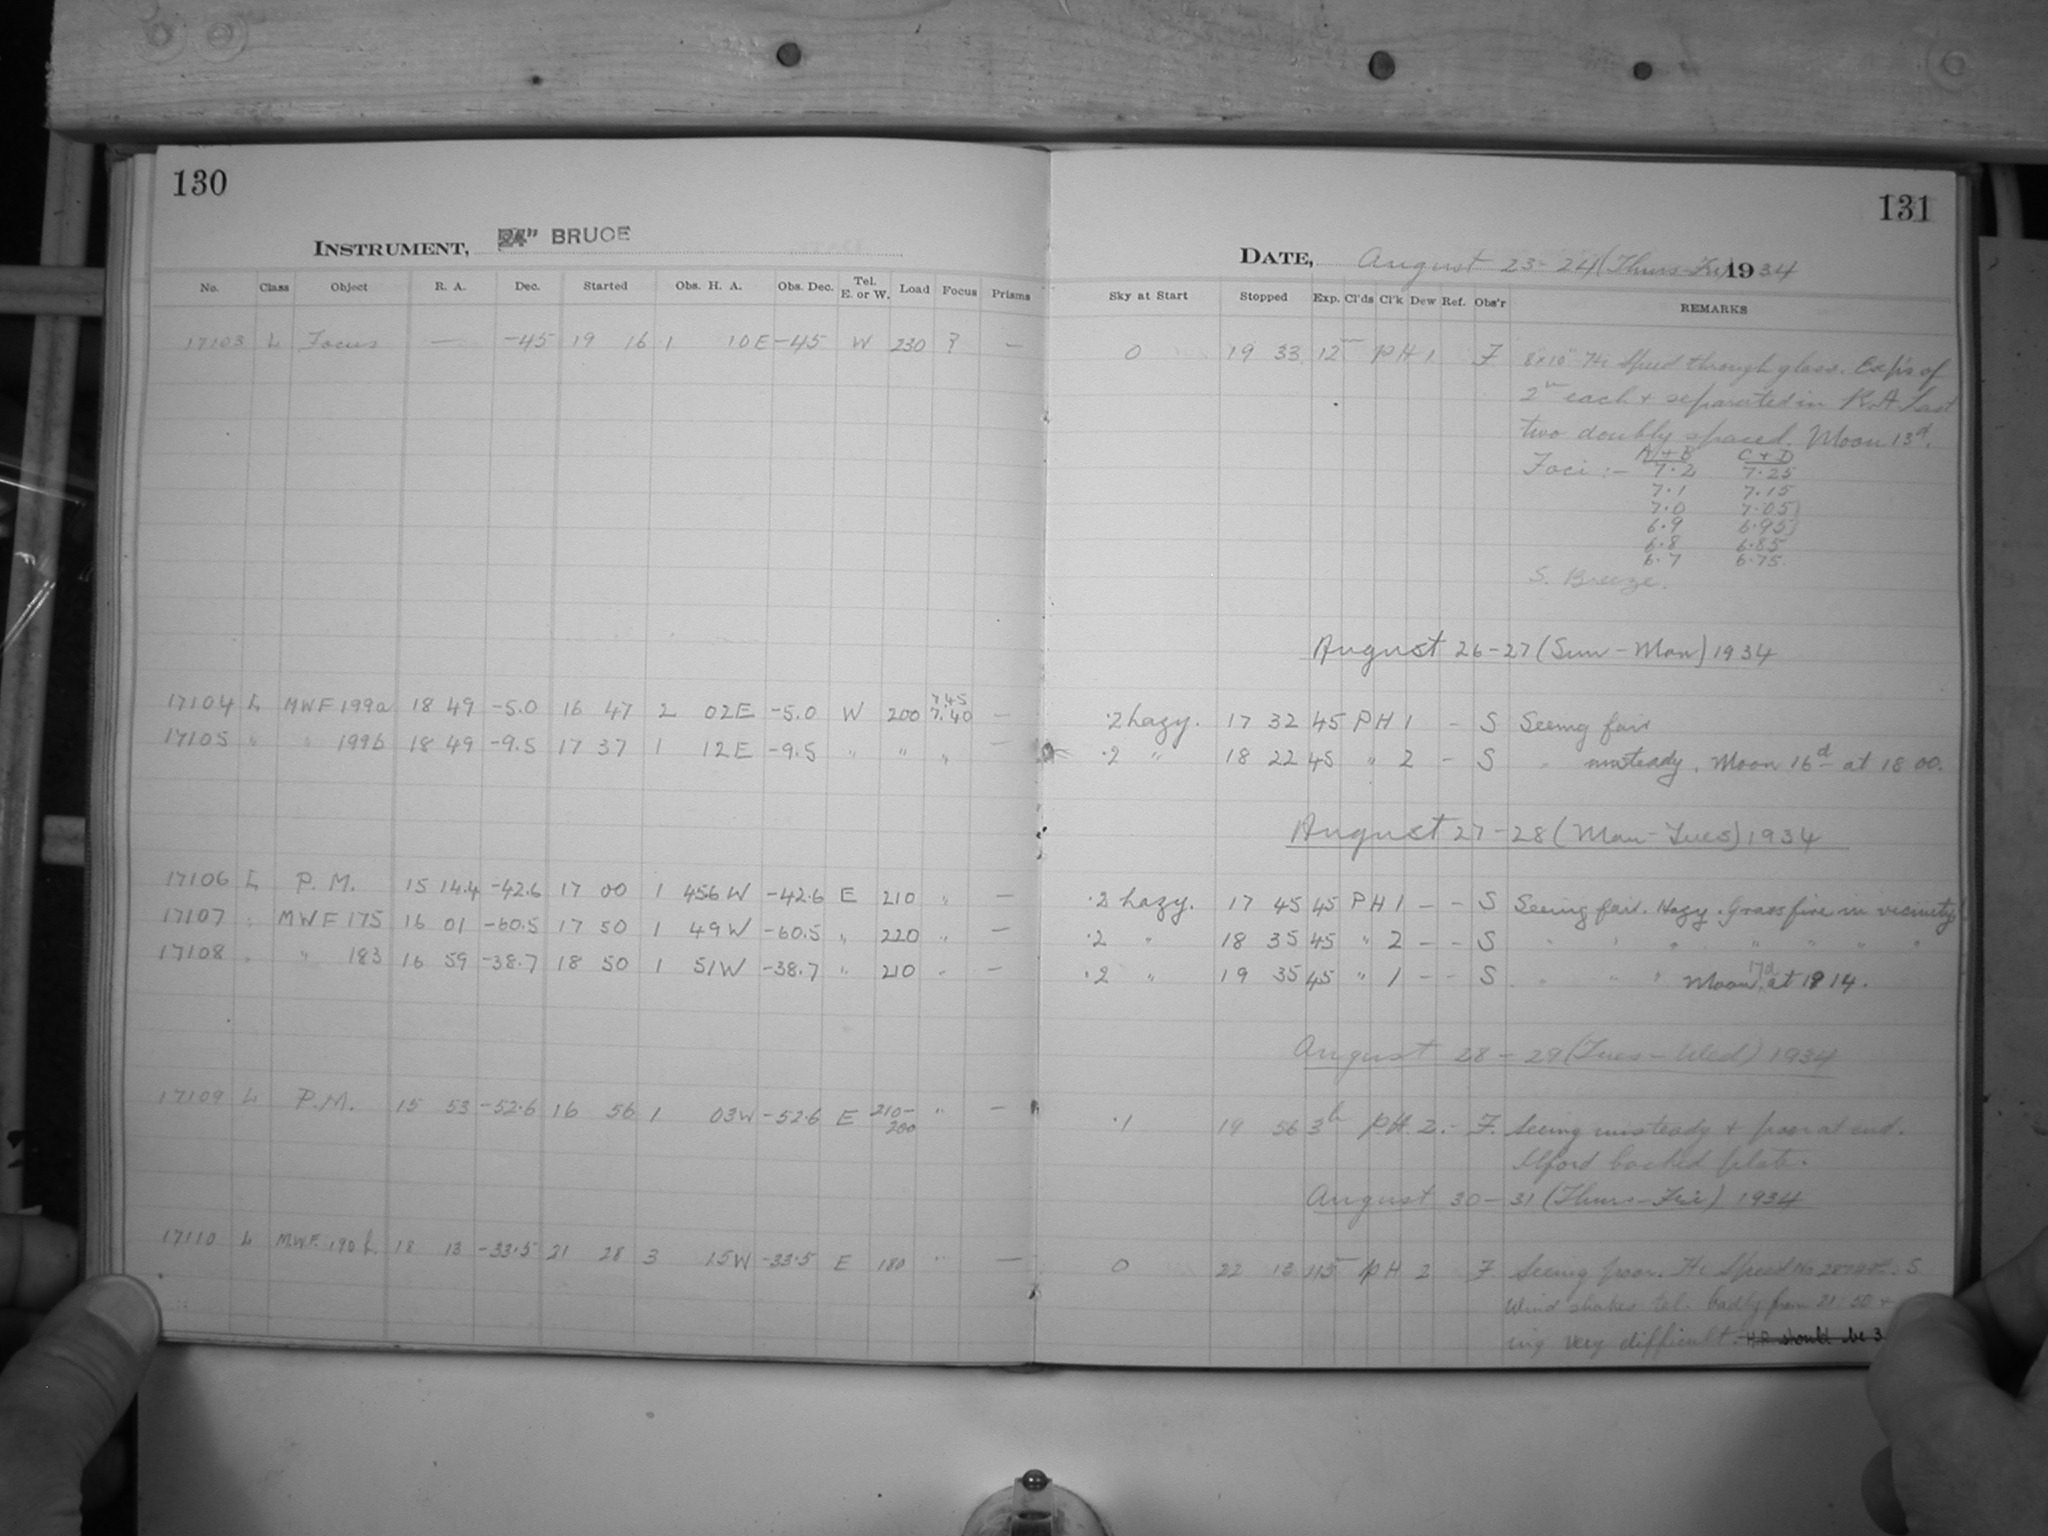 130
INSTRUMENT, 24" BRUCE
No. Class Object R. A. Dec. Started Obs. H. A. Obs. Dec. Tel. E. or W. Load Focus Prisms
17103 L Focus — -45 19 16 1 10E -45 W 230 ? —
17104 L MWF 199a 18 49 -5.0 16 47 2 02E -5.0 W 200 7.45 7.40 —
17105 " " 199b 18 49 -9.5 17 37 1 12E -9.5 " " " —
17106 L P. M. 15 14.4 -42.6 17 00 1 456W -42.6 E 210 " —
17107 " MWF 175 16 01 -60.5 17 50 1 49W -60.5 " 220 " —
17108 " " 183 16 59 -38.7 18 50 1 51W -38.7 " 210 " —
17109 L P.M. 15 53 -52.6 16 56 1 03W -52.6 E 210- 200 " —
17110 L MWF. 190 18 13 -33.5 21 28 3 15W -33.5 E 180 " —
131
DATE, August 23-24 (Thurs-Fri) 1934
Sky at Start Stopped Exp. Cl'ds Cl'k Dew Ref. Obs'r REMARKS
0 19 33 12m PH 1 F 8x10" Hi Speed through glass. Exp's of
2m each & separated in R.A. Last
two doubly spaced. Moon 13d.
A+B C+D
Foci :- 7.2 7.25
7.1 7.15
7.0 7.05)
6.9 6.95)
6.8 6.85
6.7 6.75
S. Breeze.
August 26-27 (Sun-Mon) 1934
.2 hazy. 17 32 45 PH 1 - S Seeing fair
.2 " 18 22 45 " 2 - S " unsteady. Moon 16d at 18 00.
August 27-28 (Mon-Tues) 1934
.2 hazy. 17 45 45 PH 1 - - S Seeing fair. Hazy. Grass fire in vicinity
.2 " 18 35 45 " 2 - - S " " " " " " "
.2 " 19 35 45 " 1 - - S " " " Moon 17d at 19 14.
August 28-29 (Tues-Wed) 1934
.1 19 56 3h PH 2. - F. Seeing unsteady & poor at end.
Ilford backed plate.
August 30-31 (Thurs-Fri) 1934
0 22 13 45m PH 2 F Seeing poor. Hi Speed No S
Wind shakes tel. badly from 21:50 +
ing very difficult. H.A. should be 3